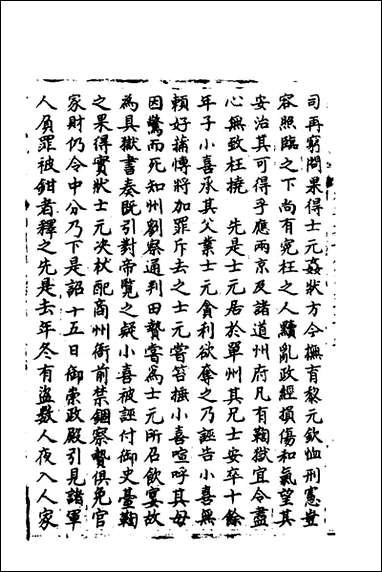 司再窮問果得士元姦狀方今撫育黎元欽恤刑憲豈
容照臨之下尚有冤枉之人黷亂政經損傷和氣望其
安治其可得乎應兩京及諸道州府凡有鞠獄宜令盡
心無致枉撓　先是士元居於單州其兄士安卒十餘
年子小喜承其父業士元貪利欲奪之乃誣告小喜無
賴好蒱博將加罪斥去之士元嘗笞捶小喜喧呼其母
因驚而死知州劉察通判田贄嘗為士元所召飲宴故
為具獄書奏既引對帝覽之疑小喜被誣付御史臺鞠
之果得實狀士元決杖配商州衙前禁錮察贄俱免官
家財仍令中分乃下是詔十五日御崇政殿引見諸軍
人負罪被鉗者釋之先是去年冬有盜數人夜入人家